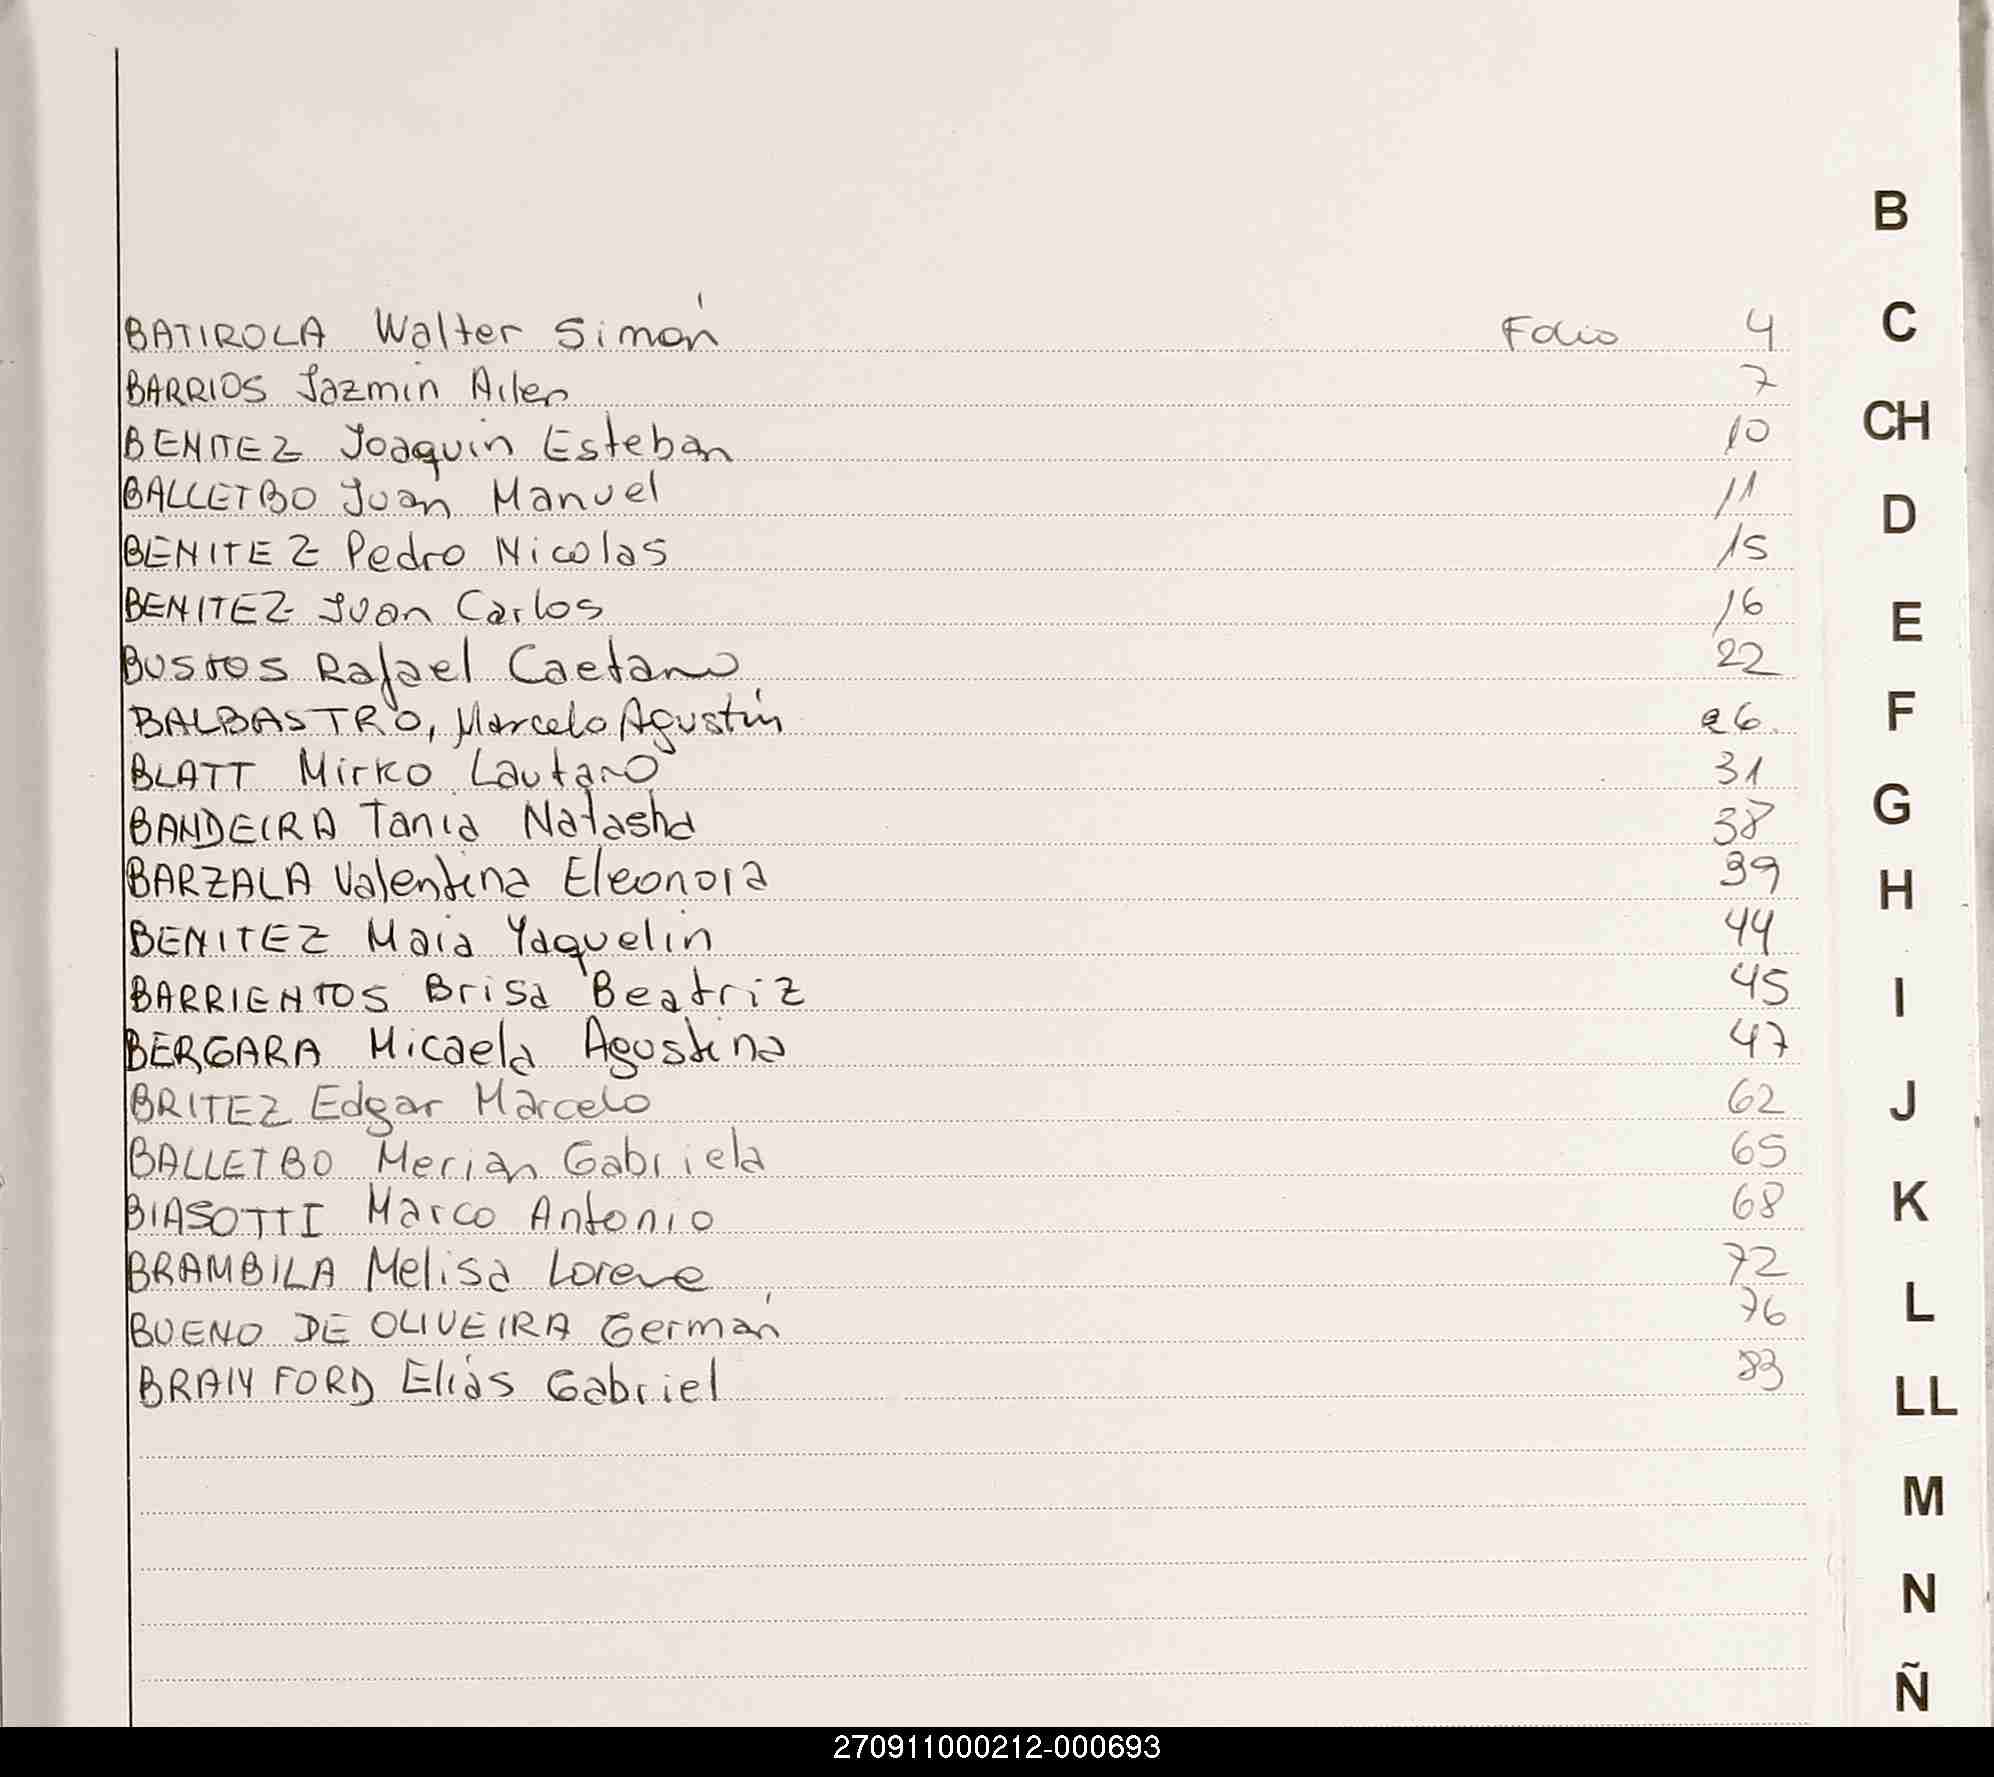 B
C
CH
D
E
F
G
H
I
J
K
L
LL
M
N
Ñ
BATIROLA Walter Simón Folio 4
BARRIOS Jazmin Ailen 7
BENITEZ Joaquin Esteban 10
BALLETBO Juan Manuel 11
BENITEZ Pedro Nicolas 15
BENITEZ Juan Carlos 16
BUSTOS Rafael Caetano 22
BALBASTRO, Marcelo Agustín 26.
BLATT Mirko Lautaro 31
BANDEIRA Tania Natasha 38
BARZALA Valentina Eleonora 39
BENITEZ Maia Yaquelin 44
BARRIENTOS Brisa Beatriz 45
BERGARA Micaela Agostina 47
BRITEZ Edgar Marcelo 62
BALLETBO Merian Gabriela 65
BIASOTTI Marco Antonio 68
BRAMBILA Melisa Lorene 72
BUENO DE OLIVEIRA Germán 76
FORD Elías Gabriel 83
270911000212-000693